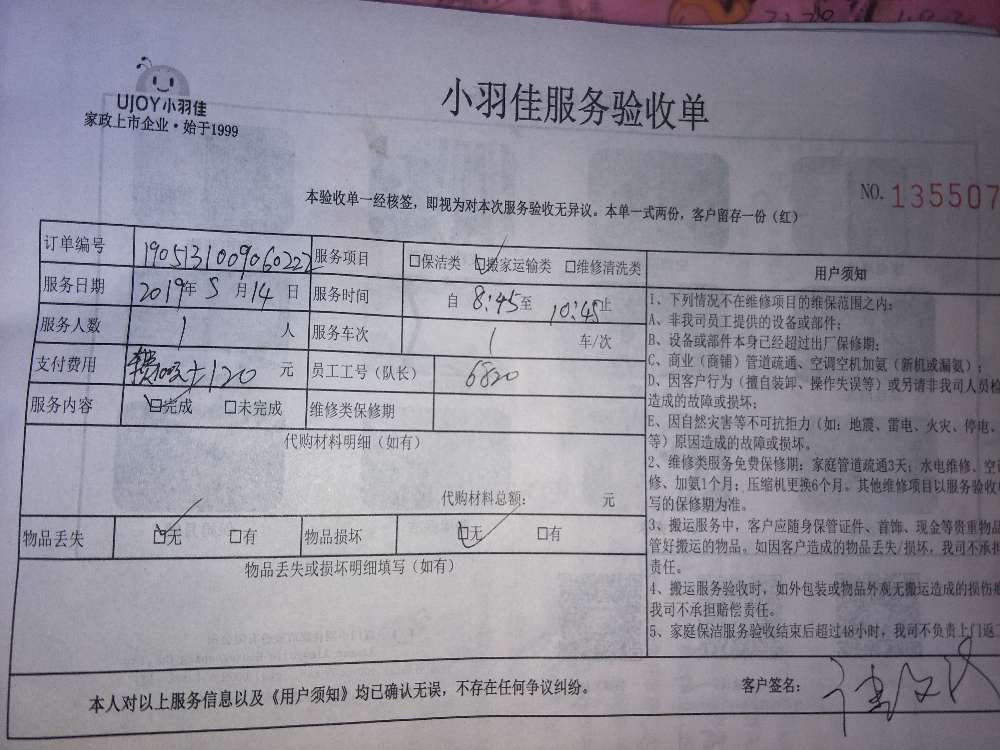 UJOY小羽佳
家政上市企业·始于1999
小羽佳服务验收单
NO. 135507
本验收单一经核签，即视为对本次服务验收无异议。本单一式两份，客户留存一份（红）
订单编号 1905131009060222 服务项目 □保洁类 □搬家运输类 □维修清洗类
服务日期 2019年5月14日 服务时间 自 8:45至 10:45止
服务人数 1 人 服务车次 1 车/次
支付费用 120 元 员工工号（队长） 6820
服务内容 □完成 □未完成 维修类保修期
代购材料明细（如有）
代购材料总额： 元
物品丢失 □无 □有 物品损坏 □无 □有
物品丢失或损坏明细填写（如有）
用户须知
1、下列情况不在维修项目的维保范围之内：
A、非我司员工提供的设备或部件；
B、设备或部件本身已经超过出厂保修期；
C、商业（商铺）管道疏通、空调空机加氨（新机或漏氨）；
D、因客户行为（擅自装卸、操作失误等）或另请非我司人员检
造成的故障或损坏；
E、因自然灾害等不可抗拒力（如：地震、雷电、火灾、停电、
等）原因造成的故障或损坏。
2、维修类服务免费保修期：家庭管道疏通3天；水电维修、空调
修、加氨1个月；压缩机更换6个月。其他维修项目以服务验收单
写的保修期为准。
3、搬运服务中，客户应随身保管证件、首饰、现金等贵重物品
管好搬运的物品。如因客户造成的物品丢失/损坏，我司不承担
责任。
4、搬运服务验收时，如外包装或物品外观无搬运造成的损伤痕
我司不承担赔偿责任。
5、家庭保洁服务验收结束后超过48小时，我司不负责上门返工
本人对以上服务信息以及《用户须知》均已确认无误，不存在任何争议纠纷。
客户签名：